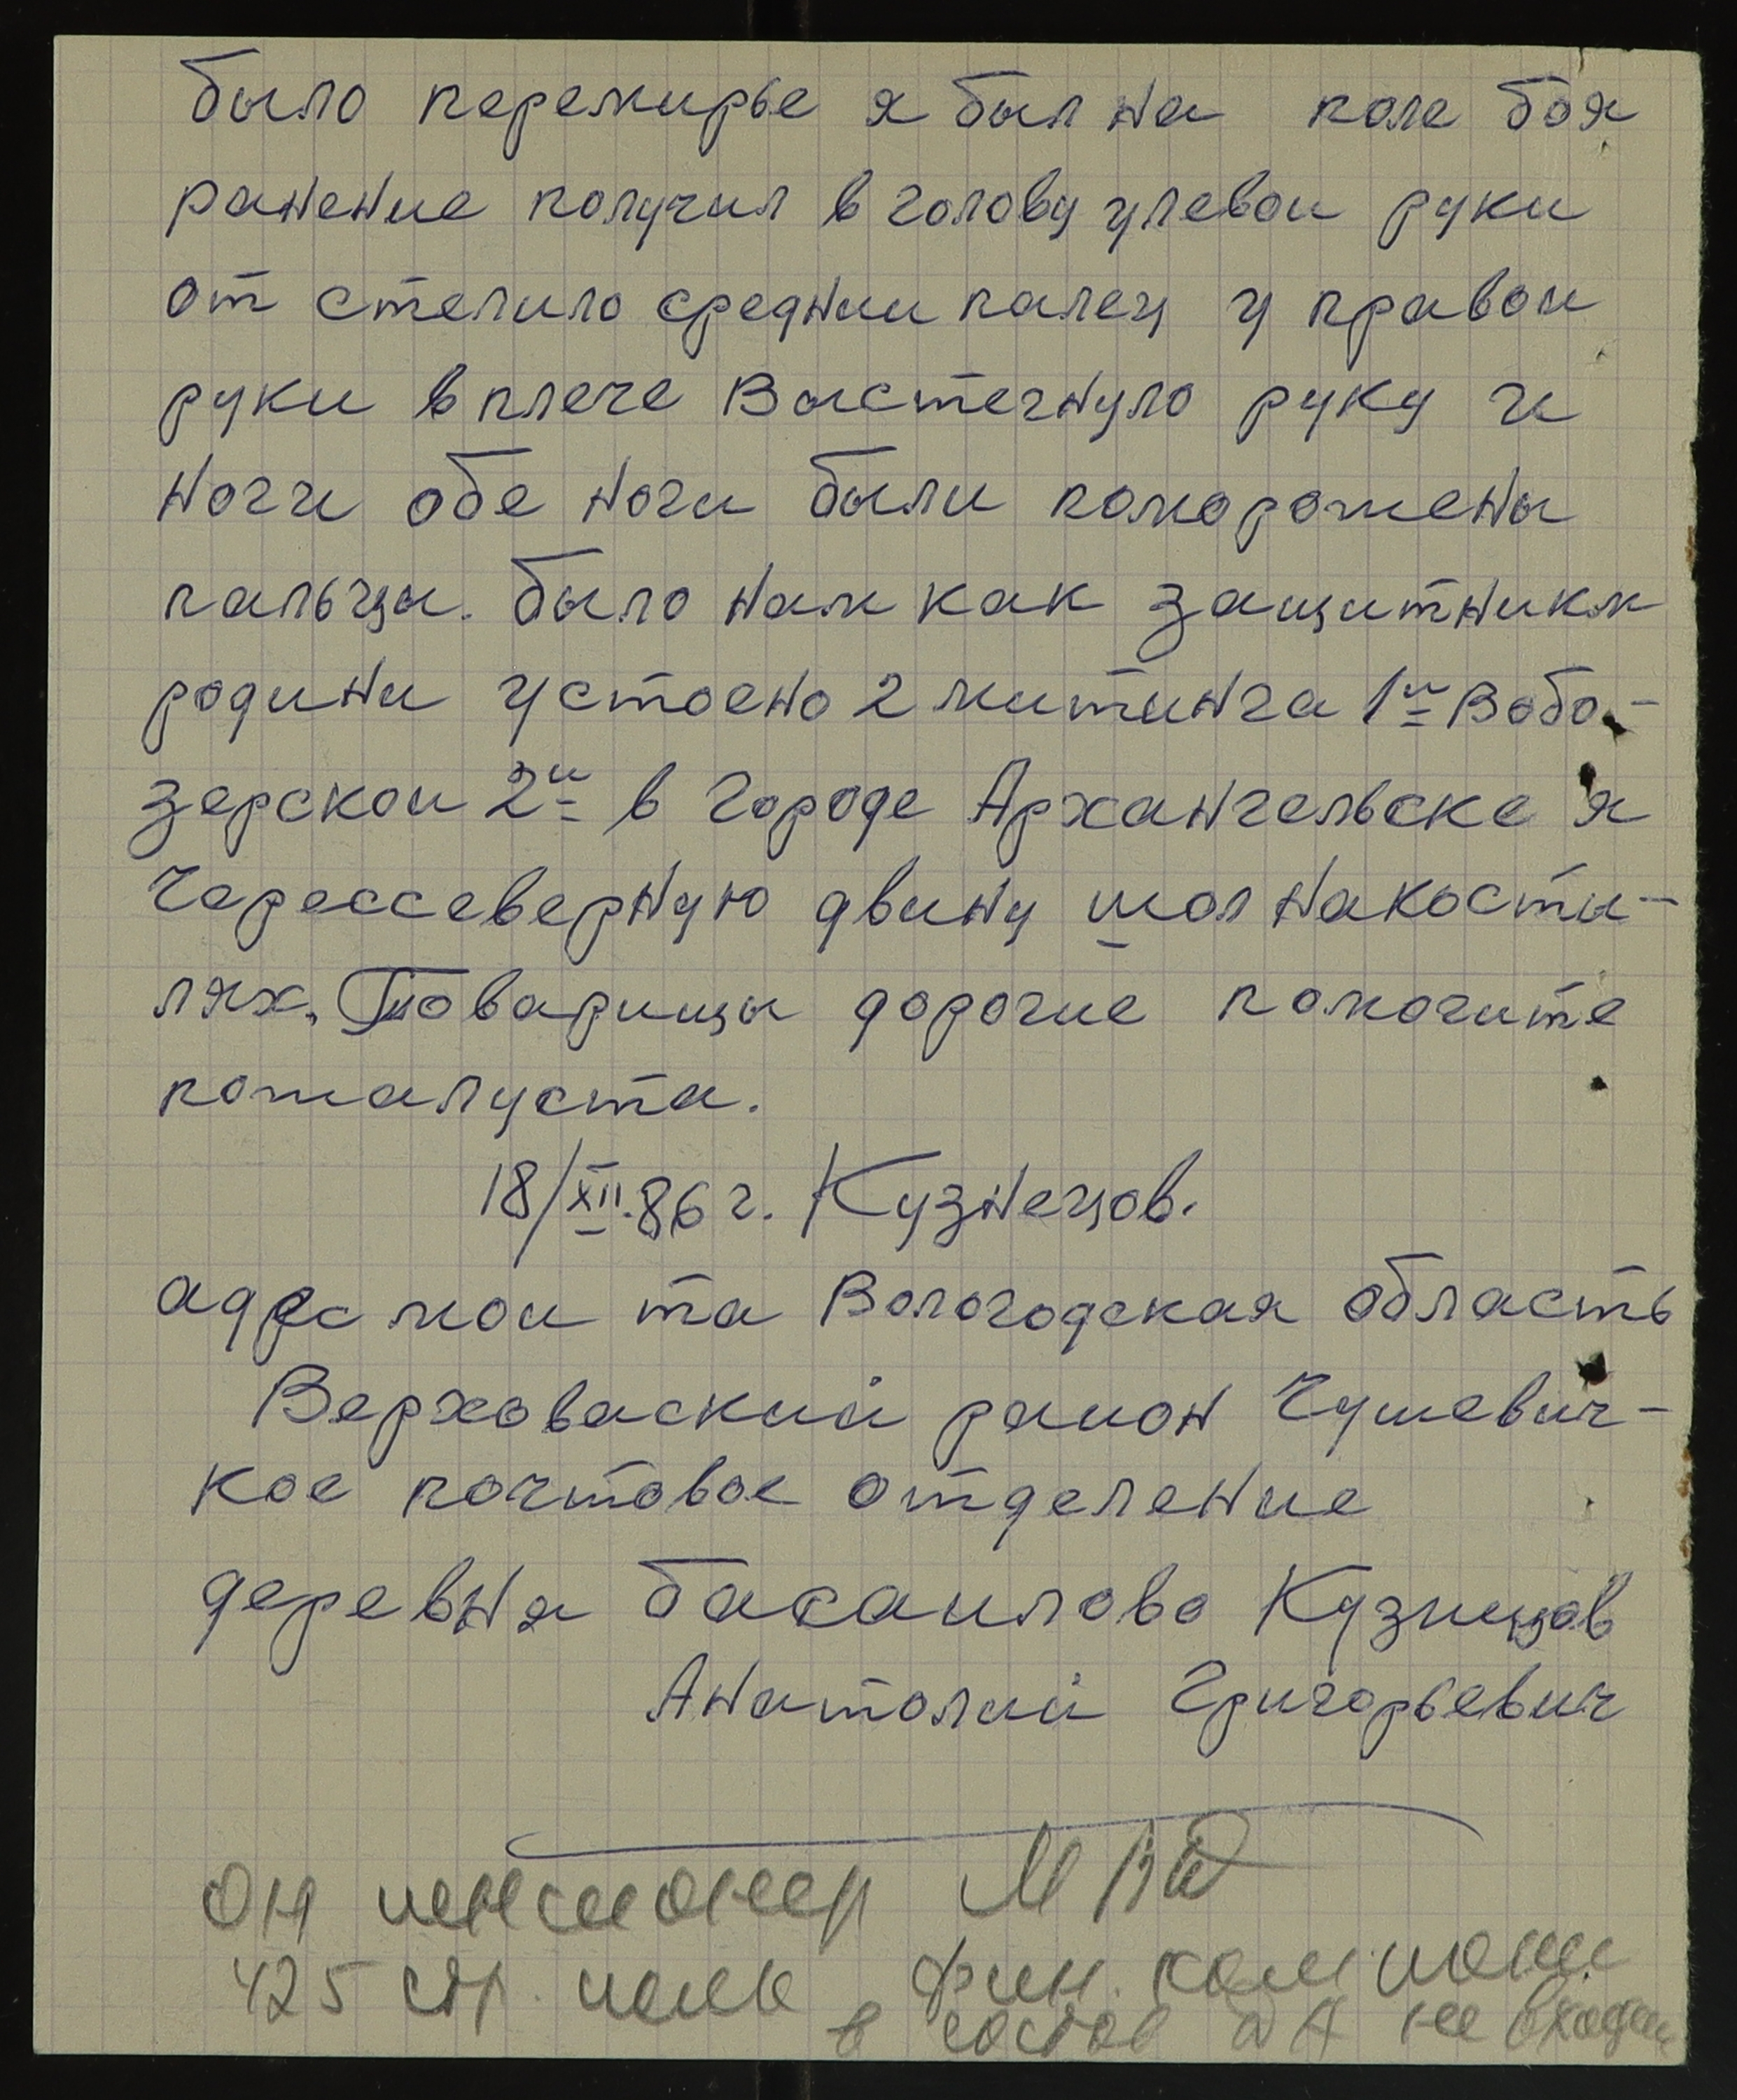 было перемирье я был на поле боя
ранение получил в голову улевои руки
от стелило среднии палец у правои
руки в плече Выстегнуло руку и
ноги обе ноги были поморожены
пальцы. было нам как защитникм
родини устоено 2 митинга 1й Вобо-
зерскои 2й в городе Архангельске я
Черессеверную двину шол накосты-
лях. Товарищы дорогие помогите
пожалуста.
18/XII.86 г. Кузнецов.
адрес мои та Вологодская область
Верховаский раион Чушевич-
кое почтовое отделение
деревня басаилово Кузницов
Анатолий Григорьевич
Он пенсионер МВД
425 стр. полк фин. компании
в состав ДА не входил